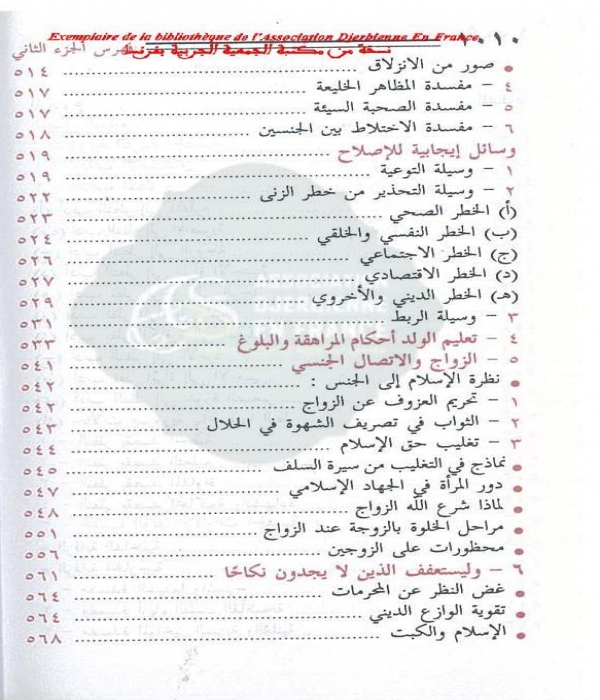 Exemplaire de la bibliothèque de l'Association Djerbienne En France
نسخة من مكتبة الجمعية الجربية بفرنسا
١٠١٠ فهرس الجزء الثاني
• صور من الانزلاق ................ ٥١٤
٤ - مفسدة المظاهر الخليعة ................ ٥١٧
٥ - مفسدة الصحبة السيئة ................ ٥١٧
٦ - مفسدة الاختلاط بين الجنسين ................ ٥١٨
وسائل إيجابية للإصلاح ................ ٥١٩
١ - وسيلة التوعية ................ ٥١٩
٢ - وسيلة التحذير من خطر الزنى ................ ٥٢٢
(أ) الخطر الصحي ................ ٥٢٣
(ب) الخطر النفسي والخلقي ................ ٥٢٤
(ج) الخطر الاجتماعي ................ ٥٢٦
(د) الخطر الاقتصادي ................ ٥٢٧
(هـ) الخطر الديني والأخروي ................ ٥٢٩
٣ - وسيلة الربط ................ ٥٣١
٤ - تعليم الولد أحكام المراهقة والبلوغ ................ ٥٣٣
٥ - الزواج والاتصال الجنسي ................ ٥٤١
• نظرة الإسلام إلى الجنس : ................ ٥٤٢
١ - تحريم العزوف عن الزواج ................ ٥٤٢
٢ - الثواب في تصريف الشهوة في الحلال ................ ٥٤٣
٣ - تغليب حق الإسلام ................ ٥٤٤
• نماذج في التغليب من سيرة السلف ................ ٥٤٥
• دور المرأة في الجهاد الإسلامي ................ ٥٤٧
• لماذا شرع الله الزواج ................ ٥٤٨
• مراحل الخلوة بالزوجة عند الزواج ................ ٥٥١
• محظورات على الزوجين ................ ٥٥٦
٦ - وليستعفف الذين لا يجدون نكاحًا ................ ٥٦١
• غض النظر عن المحرمات ................ ٥٦٤
• تقوية الوازع الديني ................ ٥٦٤
• الإسلام والكبت ................ ٥٦٨
ASSOCIATION
DJERBIENNE
EN FRANCE